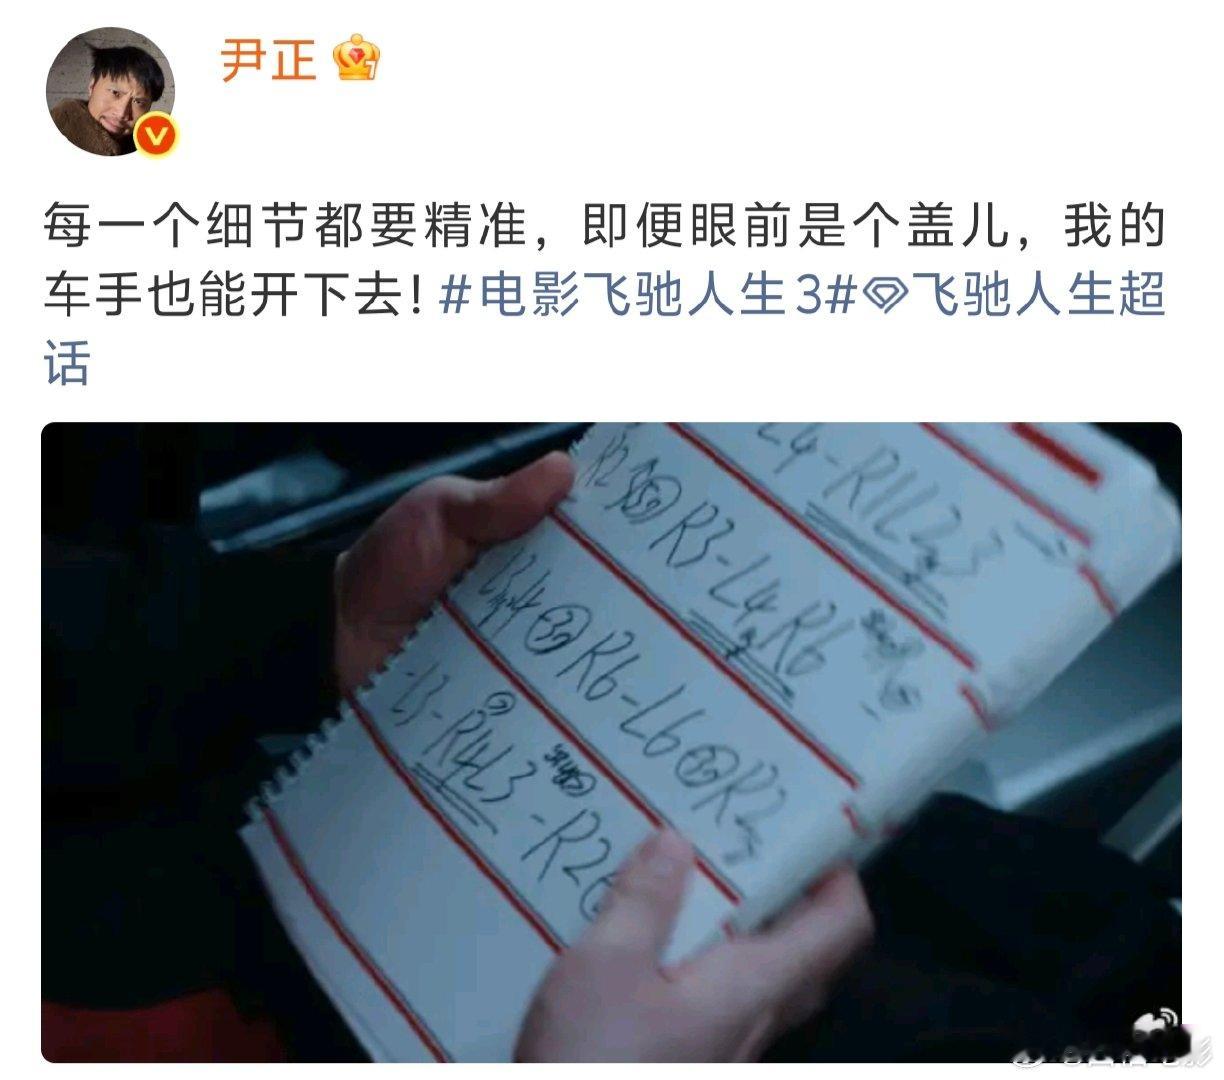 尹正
每一个细节都要精准，即便眼前是个盖儿，我的
车手也能开下去！#电影飞驰人生3#飞驰人生超
话
L4-R1L23
R3-L4R6
R6-L6 R2
L3-R4L3 -R26